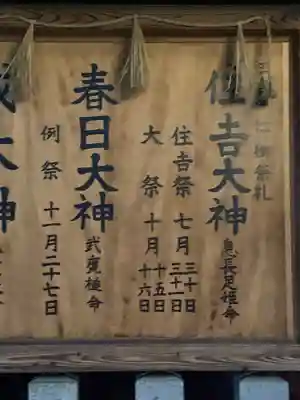 住吉大神
息長足姫命
住吉祭 七月 三十日 三十一日
大祭 十月 十五日 十六日
春日大神
武甕槌命
例祭 十一月二十七日
大神